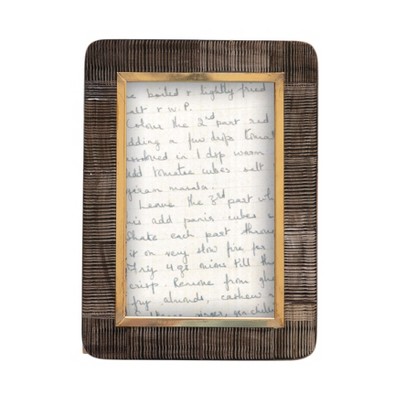 boiled & lightly fried
salt & w.P.
Colour the 2nd part red
adding a few drops tomat
in 1 dsp warm
add tomatoe cubes salt
garam masala.
Leave the 3rd part whi
add panir cubes s
Shake each part throu
it on very slow fire for
Fry 4 gr onions till th
crisp. Remove from ghe
fry almonds, cashew n